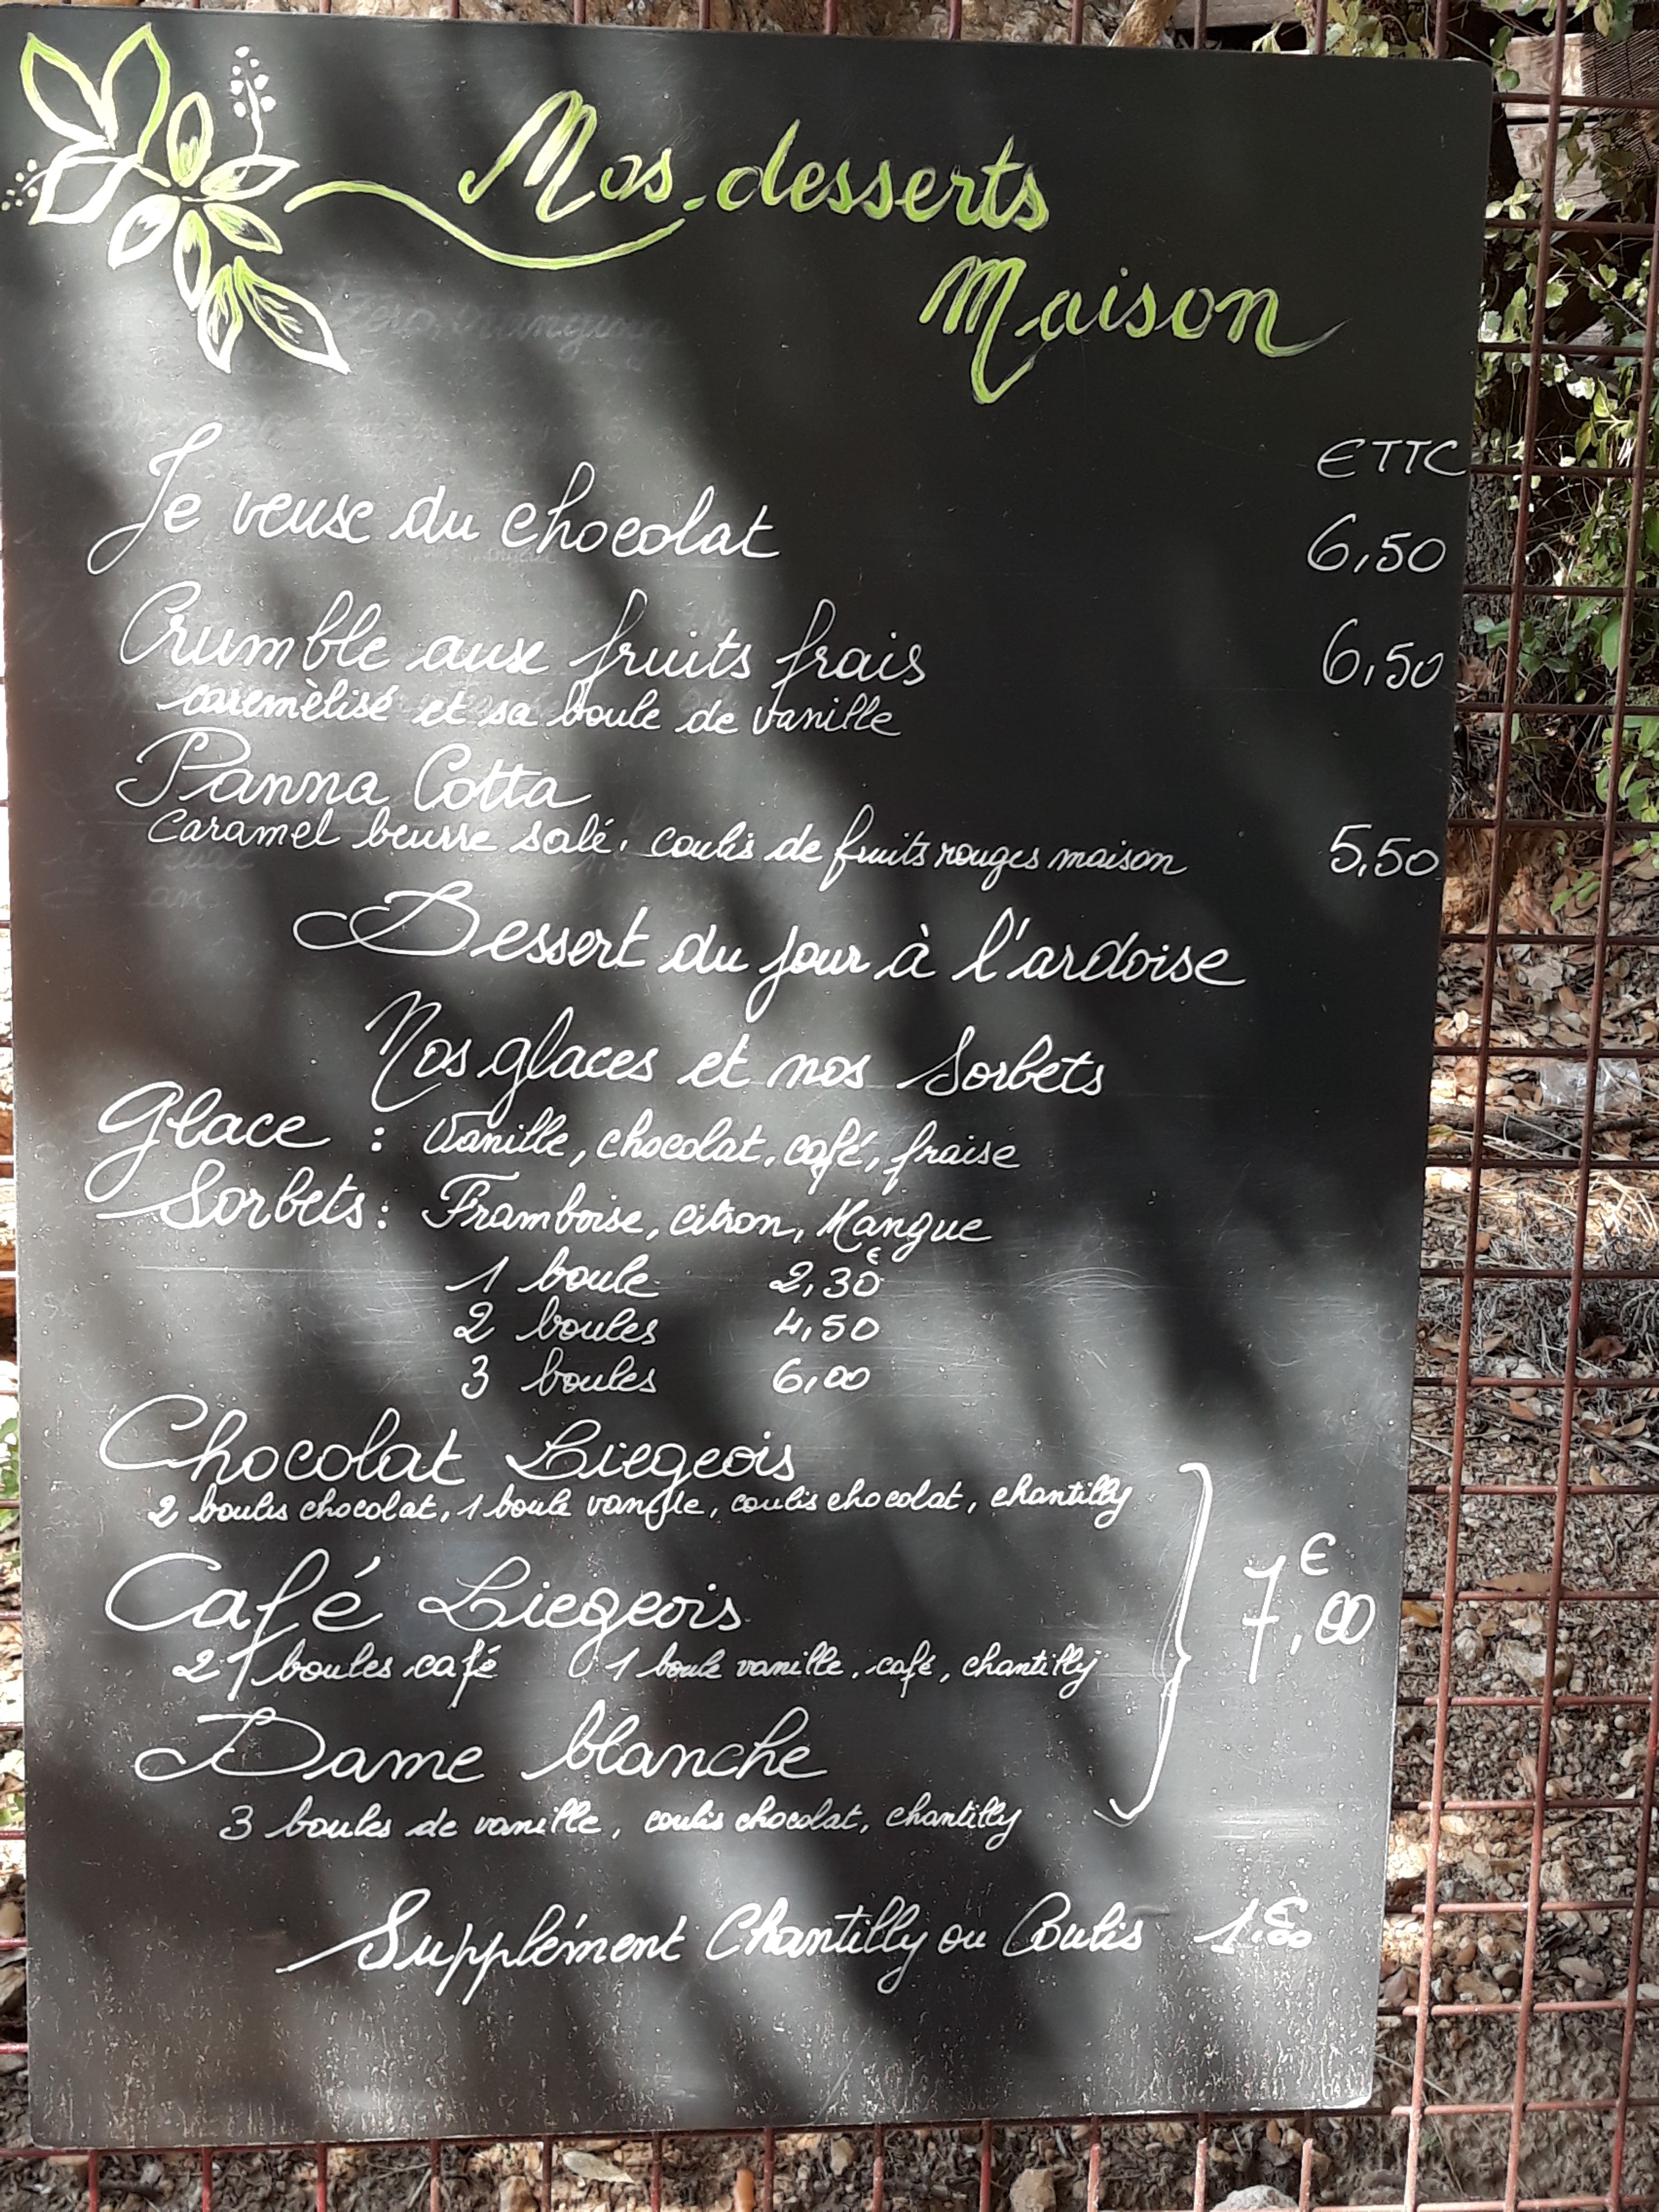 Nos desserts
Maison
€TTC
Je veux du chocolat 6,50
Crumble aux fruits frais 6,50
caremèlisé et sa boule de vanille
Panna Cotta
Caramel beurre salé, coulis de fruits rouges maison 5,50
Dessert du jour à l'ardoise
Nos glaces et nos Sorbets
Glace : Vanille, chocolat, café, fraise
Sorbets : Framboise, citron, Mangue
1 boule 2,30€
2 boules 4,50
3 boules 6,00
Chocolat Liegeois
2 boules chocolat, 1 boule vanille, coulis chocolat, chantilly
7,00€
Café Liegeois
2 boules café 1 boule vanille, café, chantilly
Dame blanche
3 boules de vanille, coulis chocolat, chantilly
Supplément Chantilly ou Coulis